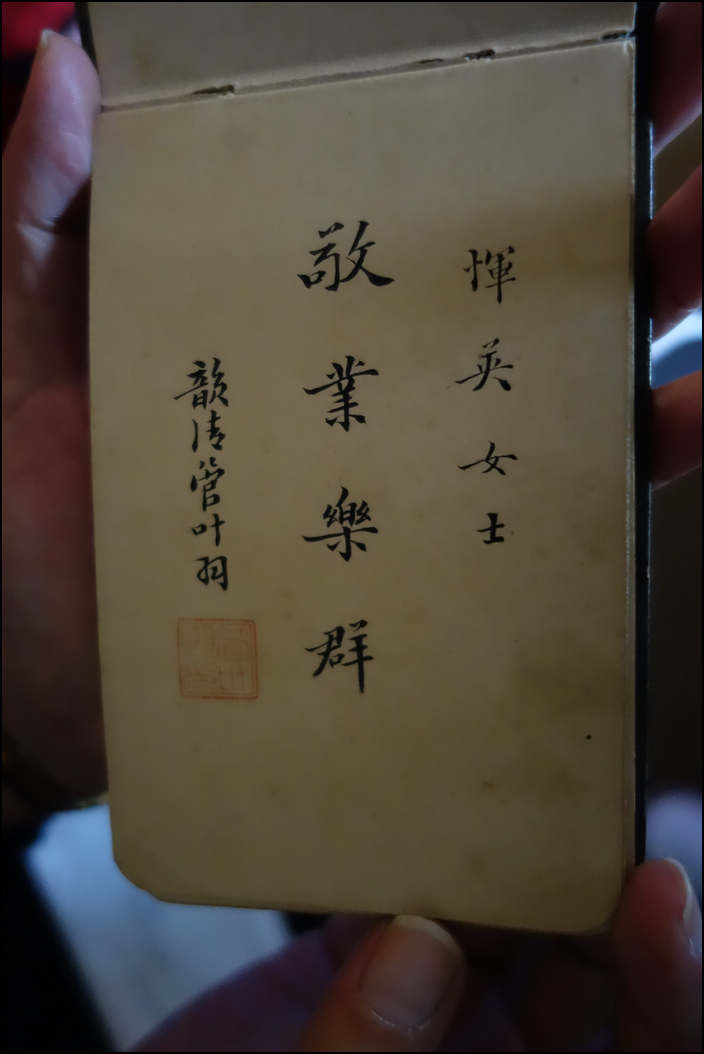 惲英女士
敬業樂群
韻清管叶羽